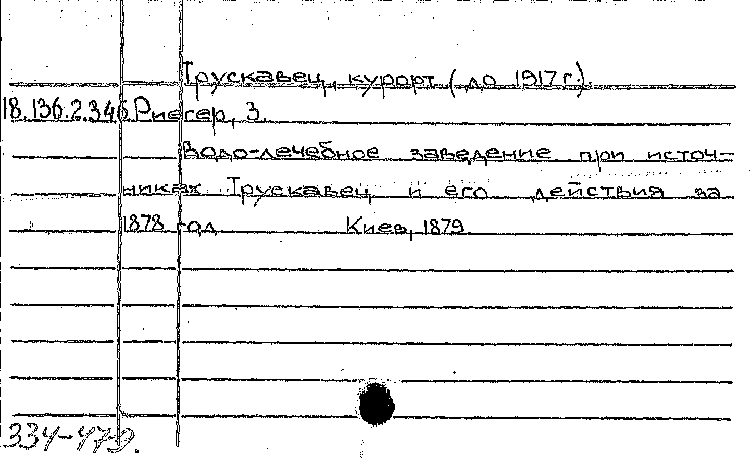 Трускавец, курорт (до 1917 г.).
18.136.2.346 Риегер, З.
Водо-лечебное заведение при источ-
никах Трускавец и его действия за
1878 год Киев, 1879
334-47-